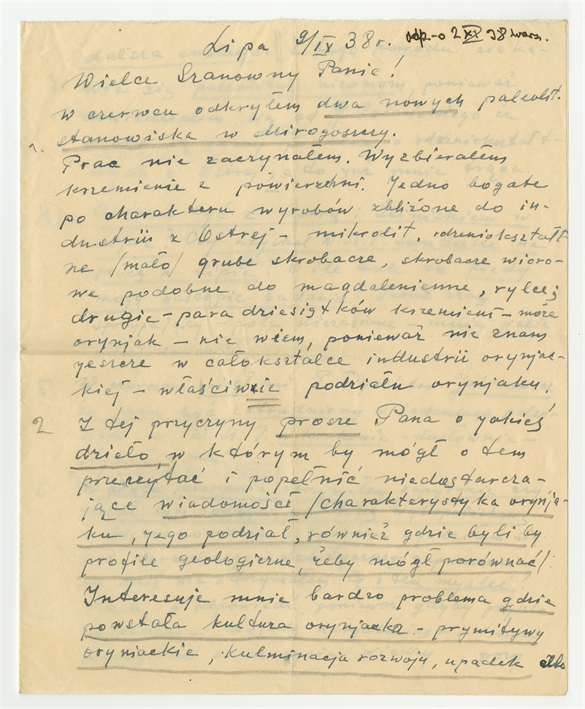 Lipa 9/IX 38 r. odp-o 2 XI 38 wars.
Wielce Szanowny Panie!
1. W czerwcu odkryłem dwa nowych paleolit.
stanowiska w Mirogoszczy.
Prac nie zaczynałem. Wyzbierałem
krzemienie z powierzchni. Jedno bogate
po charakteru wyrobów zbliżone do in-
dustrii z Ostrej - mikrolit, rdzeniokształt
ne /mało/ grube skrobacze, skrobacze wioro-
we podobne do magdalenienne, rylcej
drugie - para dziesiątków krzemieni - może
orynjak - nie wiem, ponieważ nie znam
jeszcze w całokształce industrii orynjac-
kiej - właściwie podziału orynjaku.
2 Z tej przyczyny prosze Pana o jakieś
dzieło, w którym by mógł o tem
przeczytać i popełnić niedostarcza-
jące wiadomość /charakterystyka orynja-
ku, jego podział, również gdzie byli by
profile geologiczne, żeby mógł porównać/
Interesuje mnie bardzo problema gdzie
powstała kultura orynjacka - prymitywy
oryniackie, kulminacja rozwoju, upadek albo